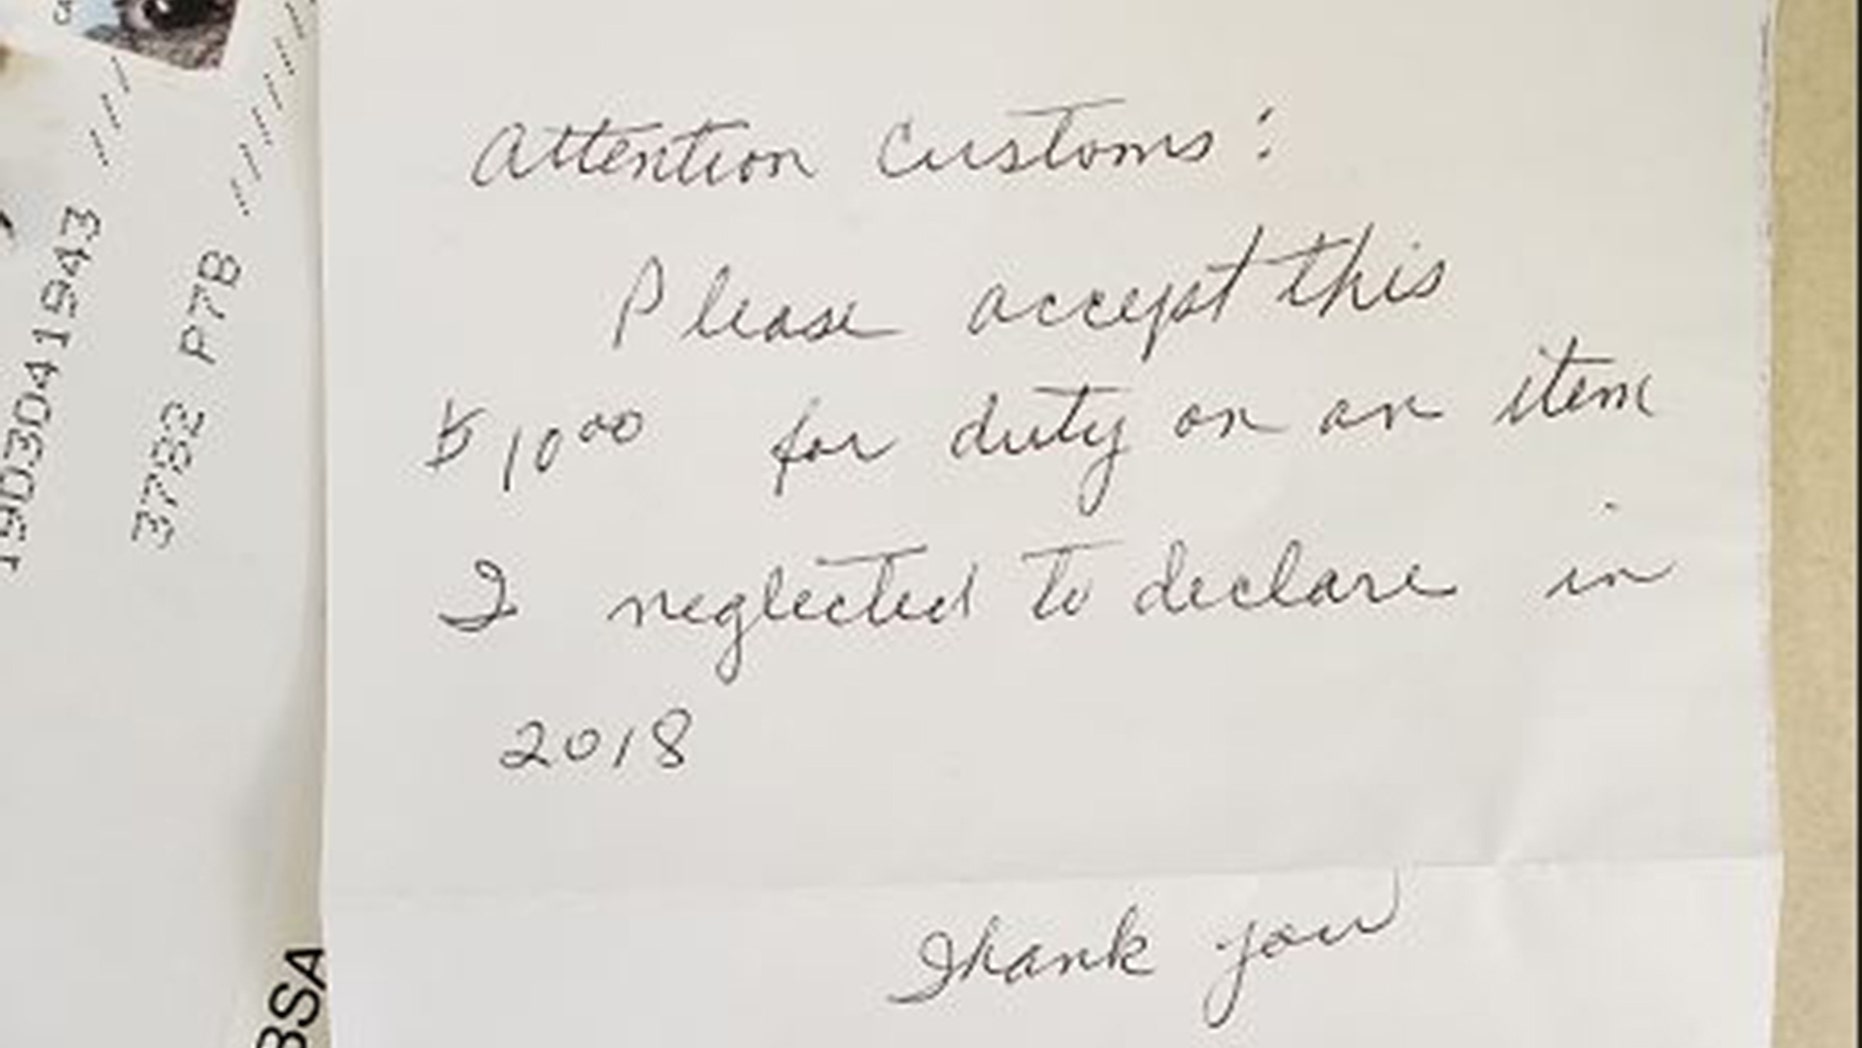 Attention Customs:
Please accept this
$10.00 for duty on an item
I neglected to declare in
2018
Thank you
1903041943
3782 P7B
BSA